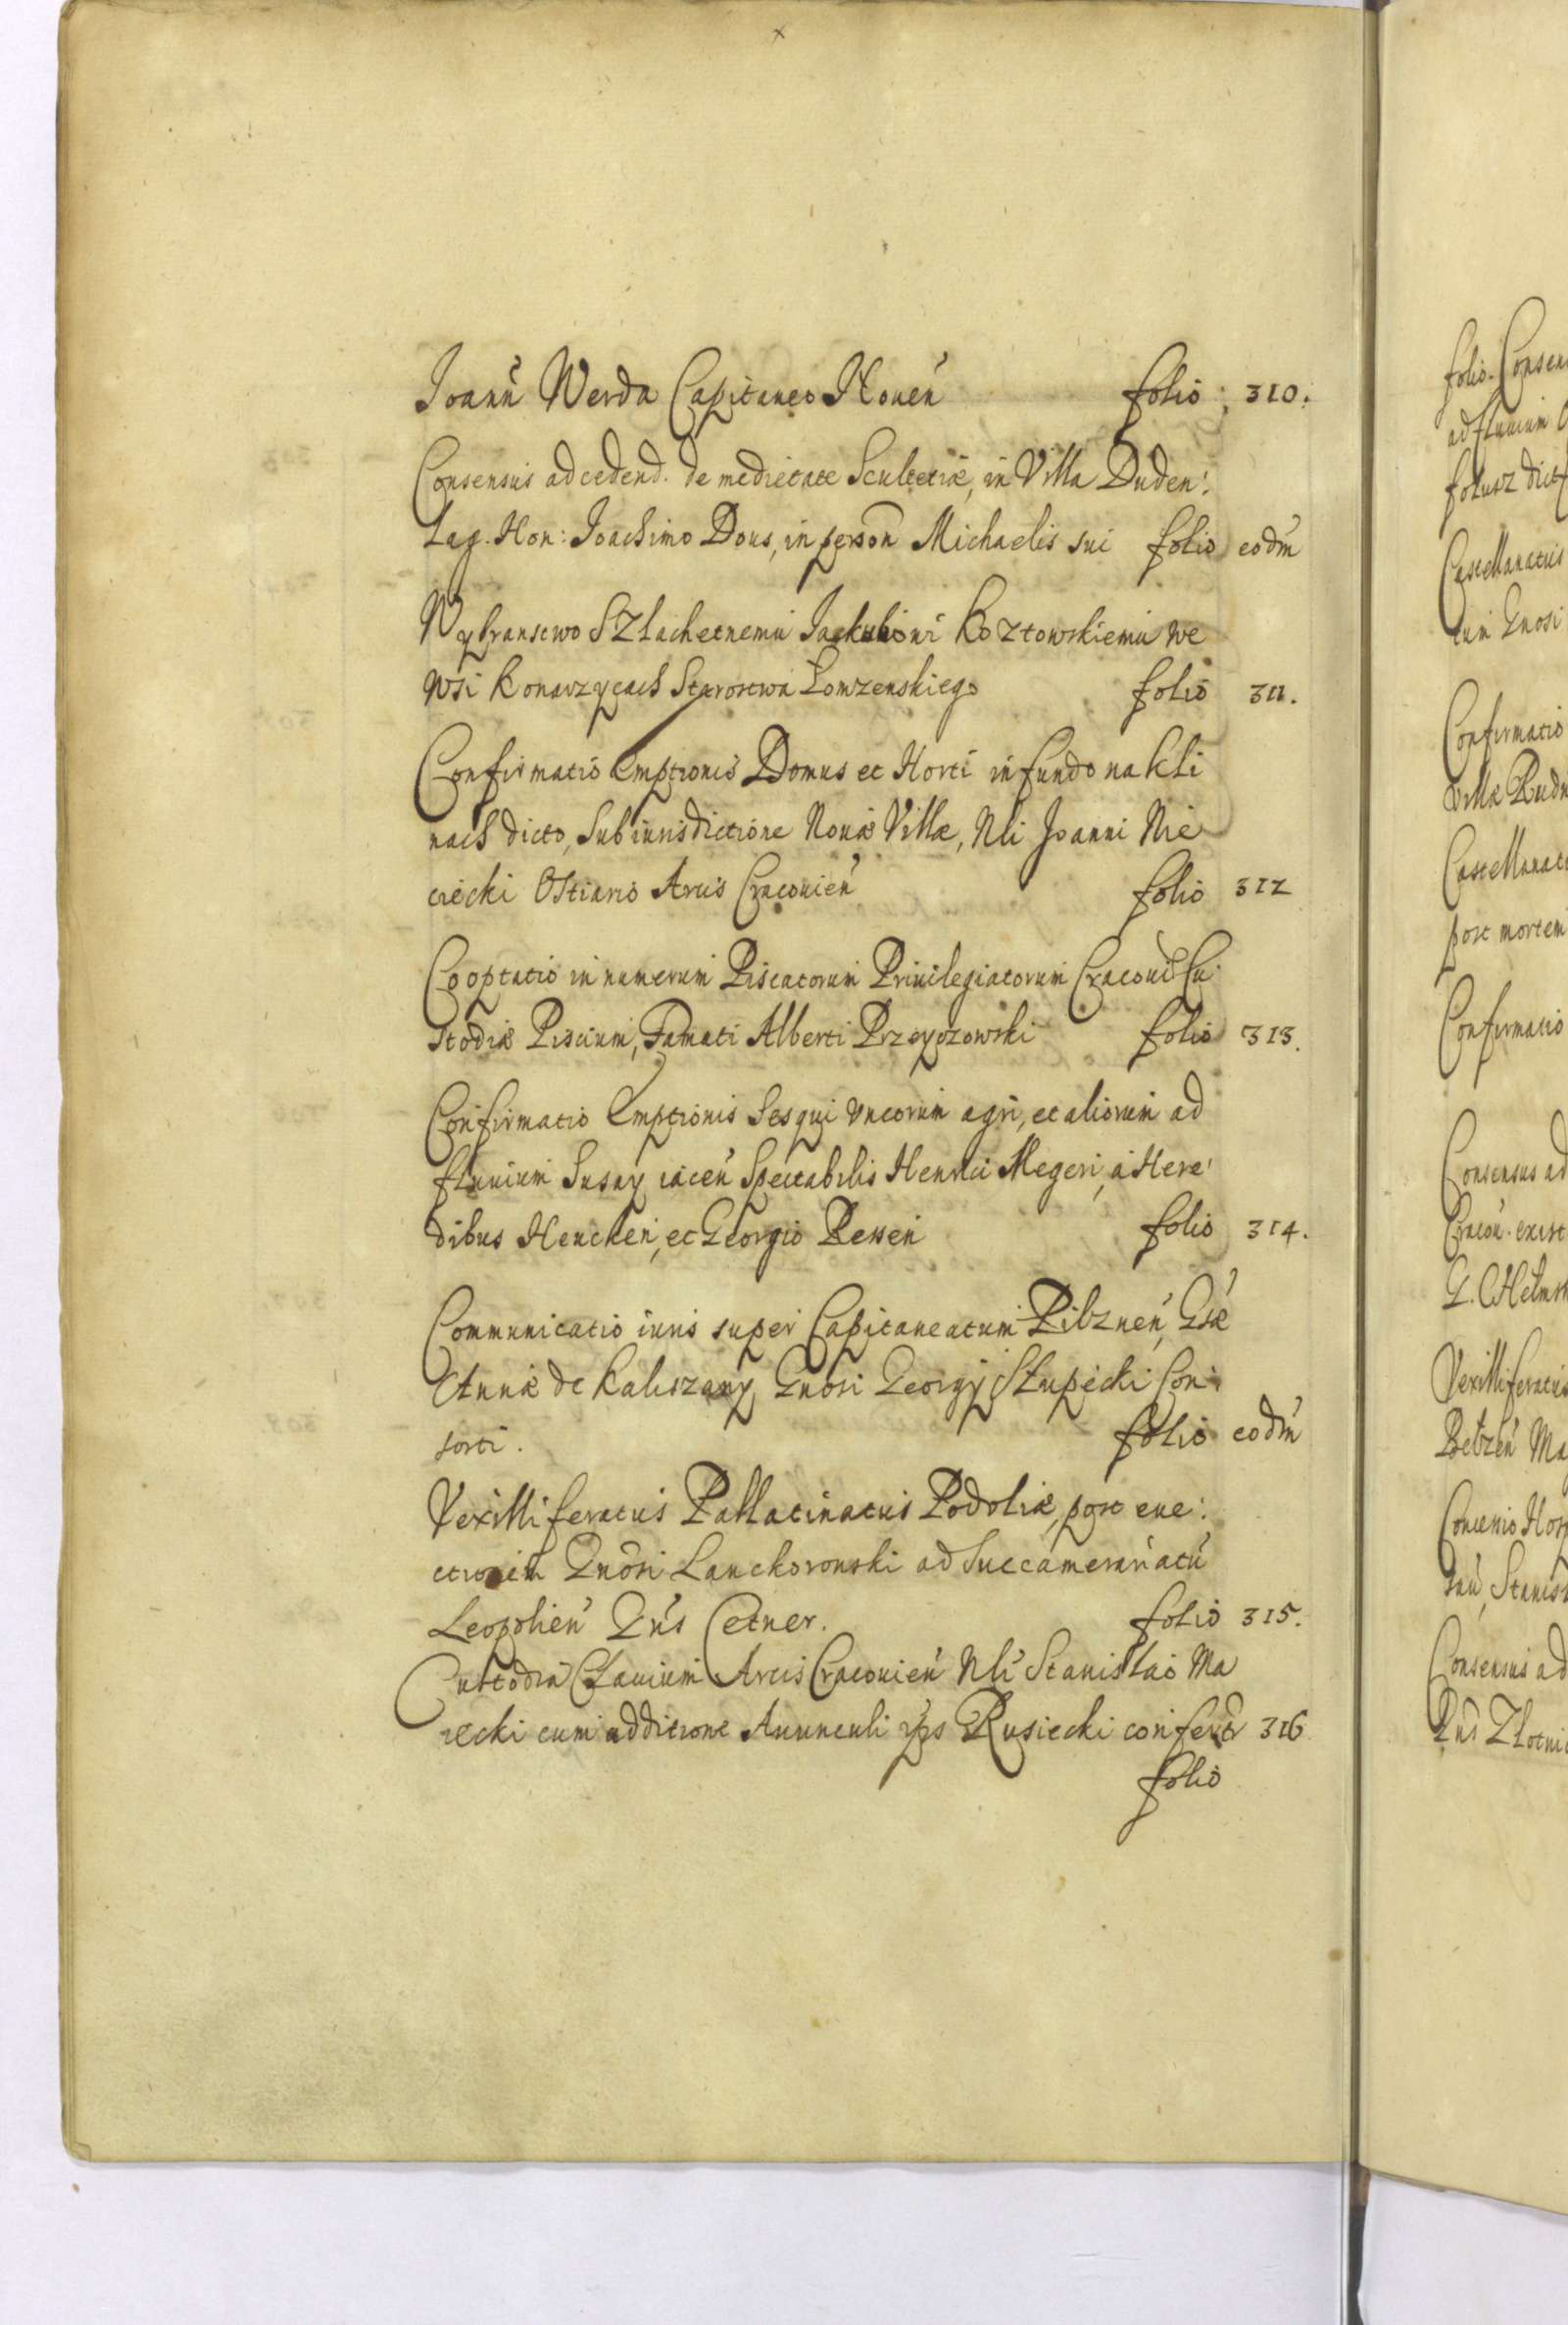 Joanń Werda Capitaneo Noueń folio 310.
Consensus ad cedend. de medietate Scultetiæ, in Villa Duden:
Lag. Hon: Joachimo Dous, in person Michaelis sui folio eodm
Wybranstwo Szlachetnemu Jackubowi Kozłowskiemu we
wsi Konarzycach Starostwa Łomzenskiego folio 311.
Confirmatio Emptionis Domus et Horti in fundo na kli
nach dicto, Sub iurisdictione Nouæ Villæ, Nli Joanni Nie
ciecki Ostiario Arcis Cracouień folio 312
Cooptatio in numerum Piscatorum Priuilegiatorum Cracoú Cu:
stodiæ Piscium, Famati Alberti Przeyczowski folio 313.
Confirmatio Emptionis Sesqui Vncorum agri, et aliorum ad
fluuium Susny iaceń Spectabilis Henrici Megeri, à Here:
dibus Hencken, et Georgio Ressen folio 314.
Communicatio iuris super Capitaneatum Pilzneń, Gsæ
Annæ de Kaliszany Gnosi Georgij Słupecki Con:
sorti. folio eodm
Vexilliferatus Pallatinatus Podoliæ, post eue:
ctionem Gnosi Lanckoronski ad Succamerariatú
Leopolień Gńs Cetner. folio 315.
Custodia Clauium Arcis Cracouień Nli Stanislao Ma
recki cum additione Auunculi ips Rusiecki confert 316
folio
folio. Consen
ad fluuium
folusz dict
Castellanatus
tum Gnosi
Confirmatio
Villæ Rudn
Castellanat
post mortem
Confirmatio
Consensus ad
Cracoú. exist
G. CHelmsk
Vexilliferatus
Belzeń Ma
Concessio Hor
Stanis
Consensus ad
Gńs Złotni